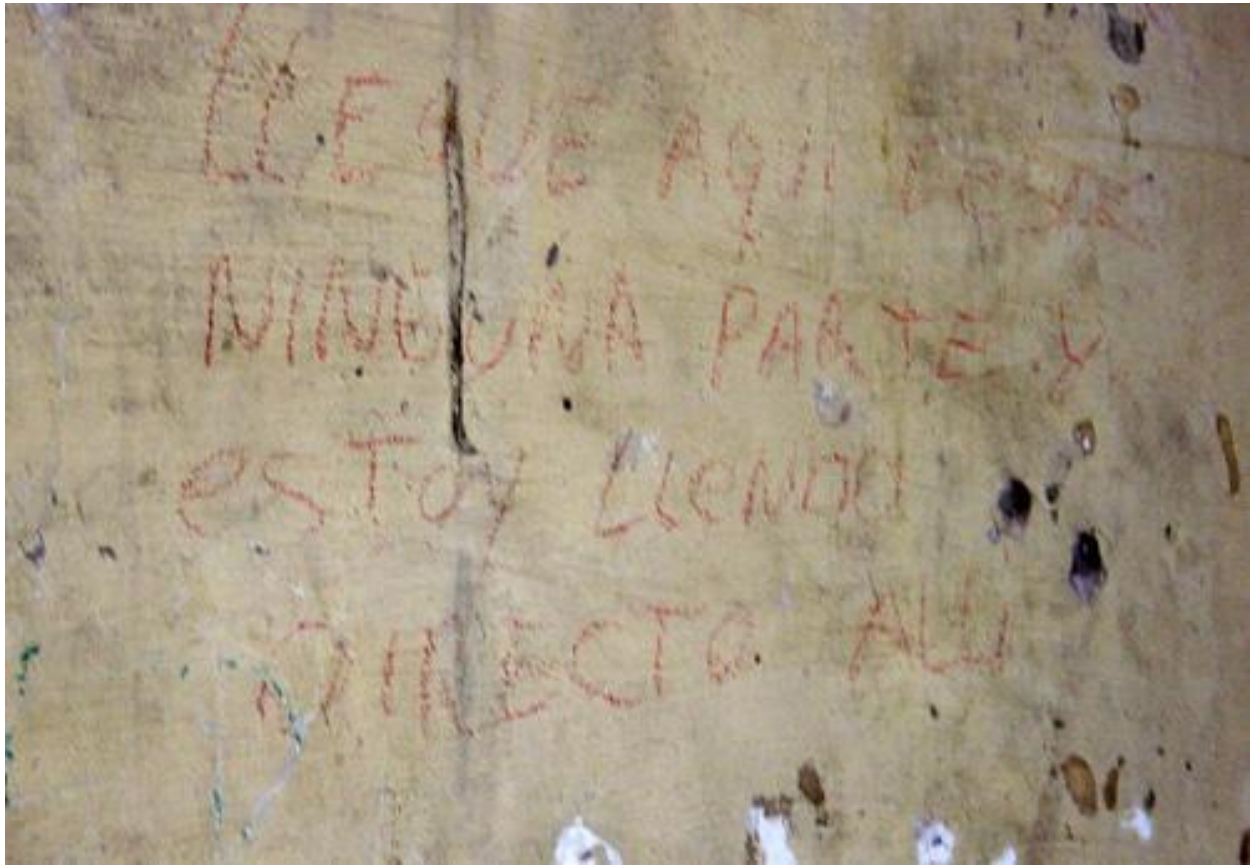 LLEGUE AQUI DESDE
NINGUNA PARTE Y
esToy LLeNDO
DIRECTO ALLI